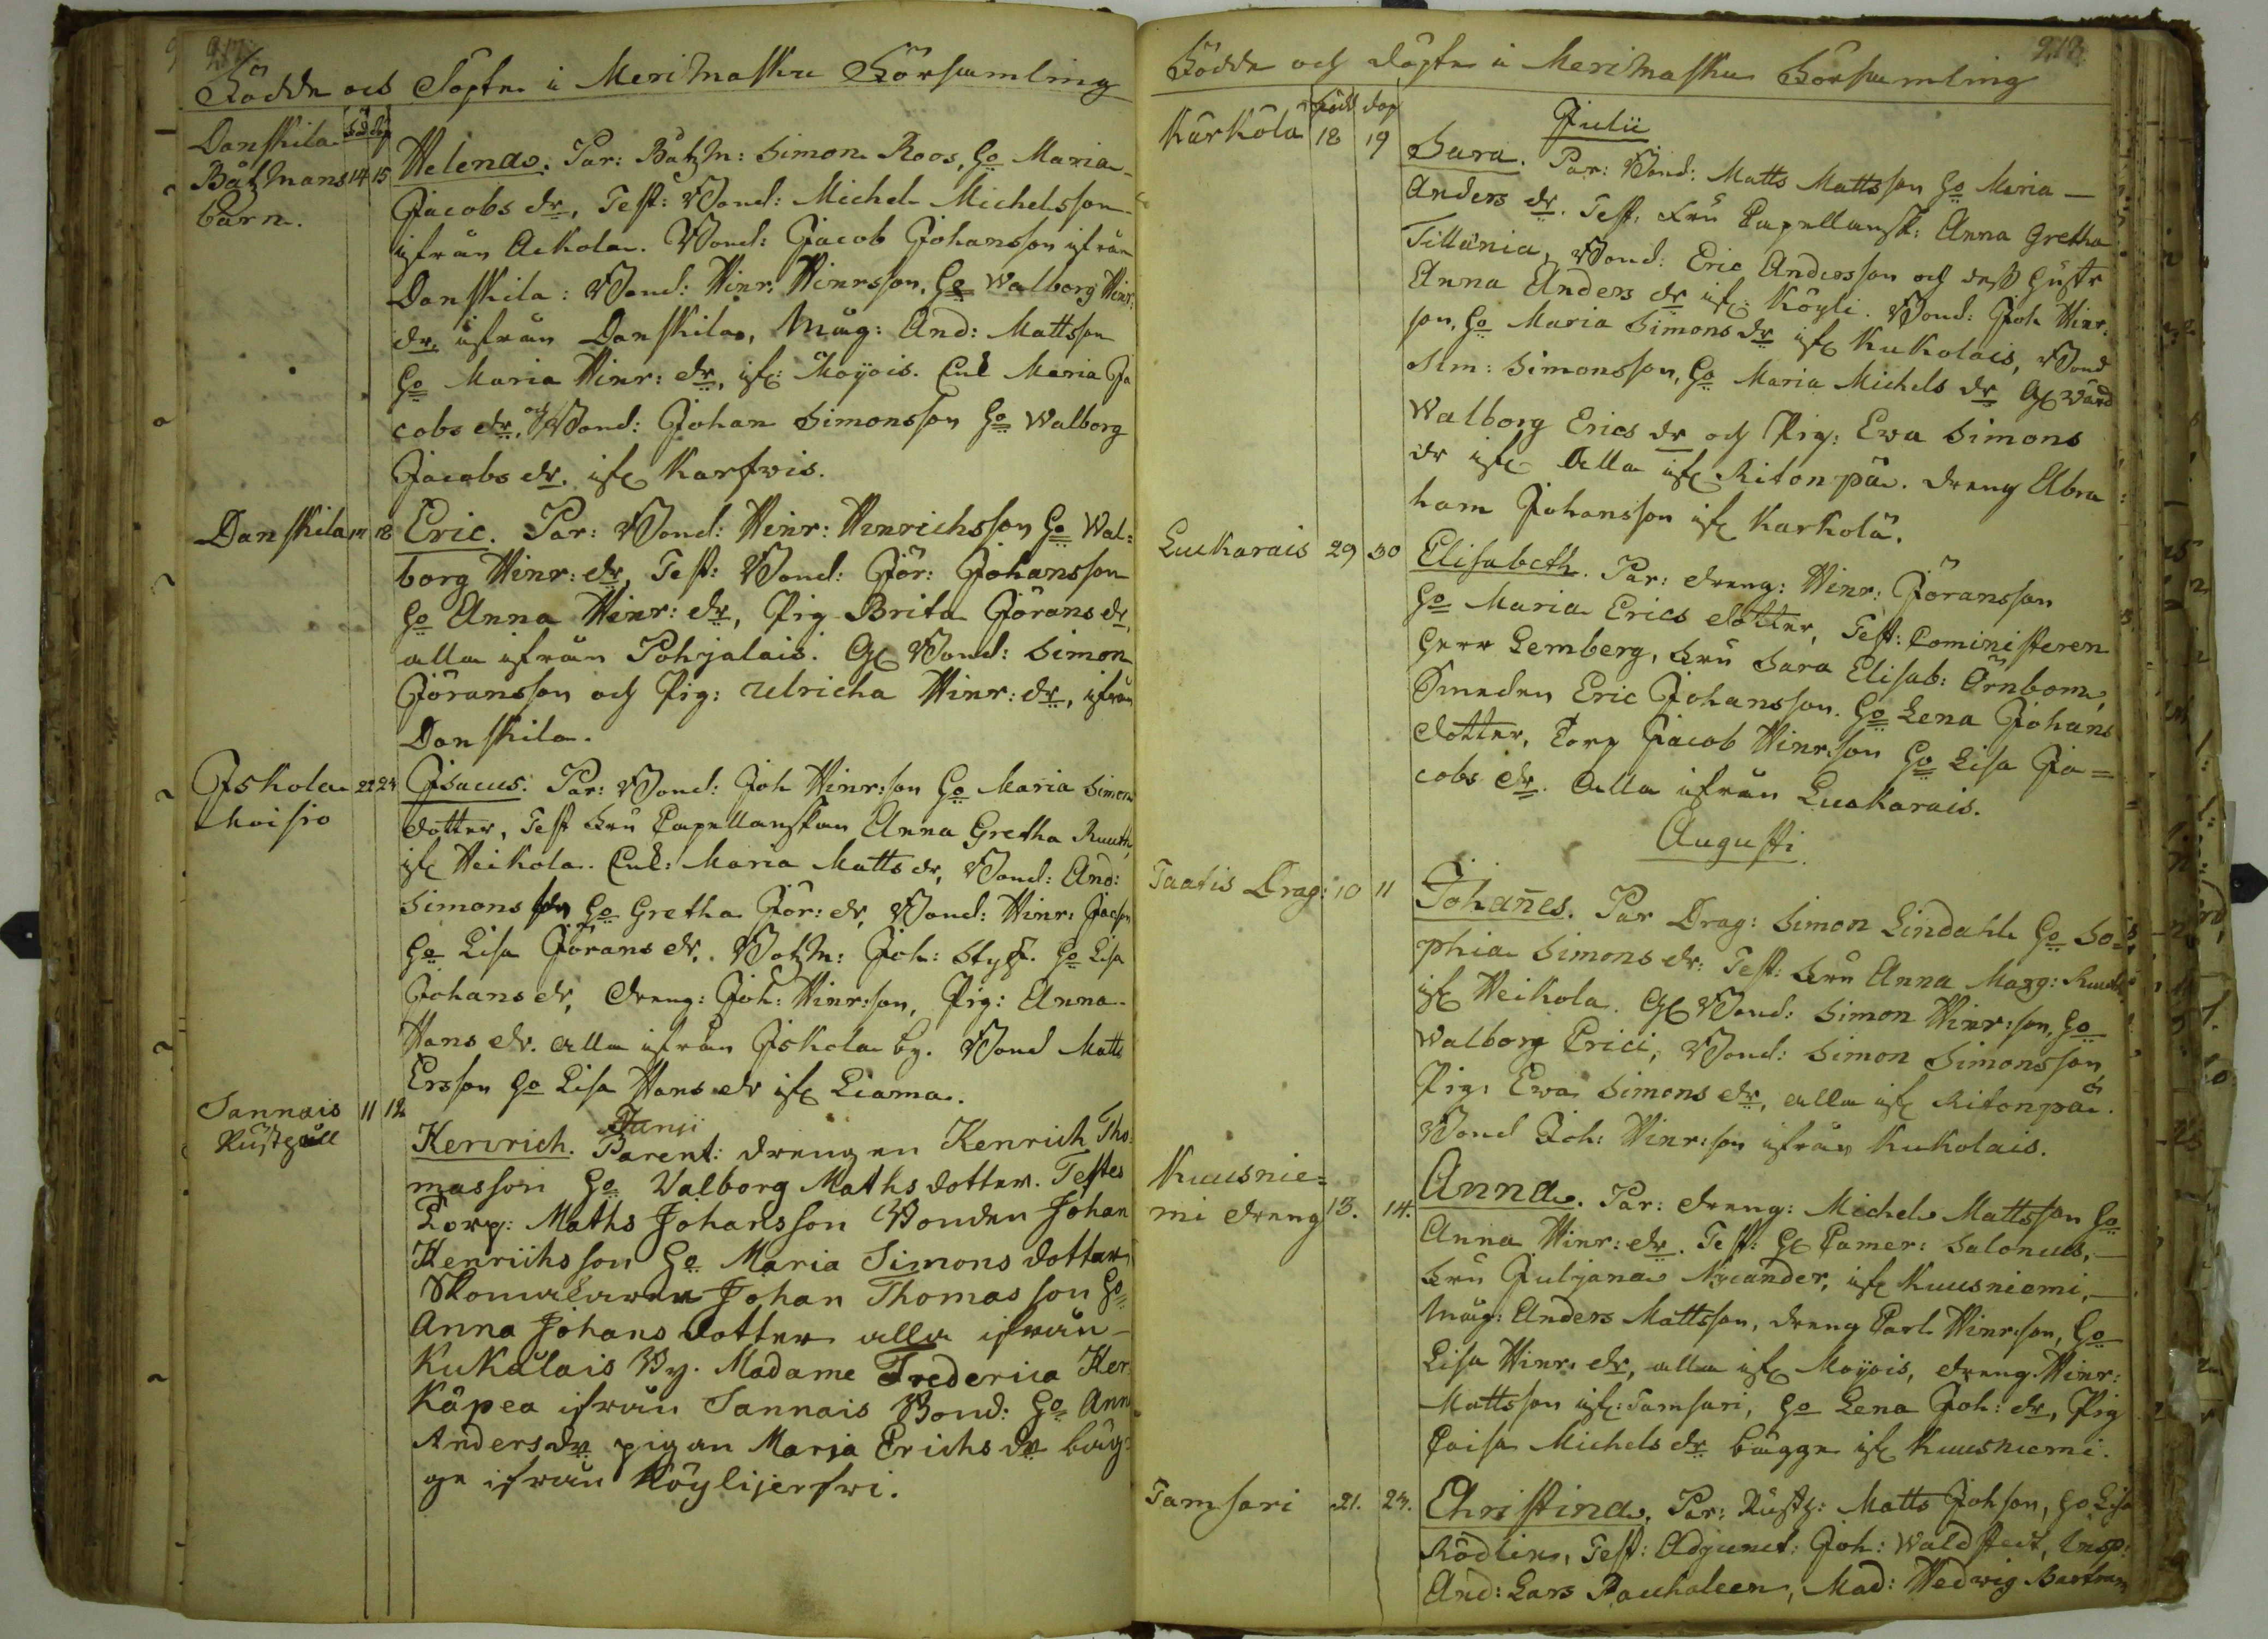 217.
Födde och Döpte i Merimasku Församling
Danskila
Båtzmans
barn.
föd döp
14 15
Helena. Par: Båtzm: Simon Roos, Ho Maria
Jacobs dr, Test: Bond: Michel Michelsson
ifrån Ackola. Bond: Jacob Johansson ifrån
Danskila: Bond: Hinr: Hinrsson, Ho Walborg Hinr:
dr, ifrån Danskila, Måg: And: Mattsson
Ho Maria Hinr: dr, ifr: Moijois. Enk Maria Ja
cobs dr, och Bond: Johan Simonsson Ho Walborg
Jacobs dr. ifr Karfwis.
Danskila 17 18
Eric. Par: Bond: Hinr: Hinrichsson Ho Wal:
borg Hinr: dr, Test: Bond: Jör: Johansson
Ho Anna Hinr: dr, Pig Brita Jörans dr,
alla ifrån Pohjalais. Gl Bond: Simon
Jöransson och Pig: Ulricha Hinr: dr, ifrån
Danskila.
Iskola 22 24
Moisio
Isacus. Par: Bond: Joh Hinr:son Ho Maria Simons
dotter, Test Fru Capellanskan Anna Gretha Ruuth,
ifr Heikola. Enk: Maria Matts dr, Bond: And:
Simonsson Ho Gretha Jör: dr, Bond: Hinr: Jacsson
Ho Lisa Jörans dr. Botzm: Joh: Styf. Ho Lisa
Johans dr, dreng: Joh: Hinr:son, Pig: Anna
Hans dr. alla ifrån Iskola by. Bond Matts
Ersson Ho Lisa Hans dr ifr Liama.
Sannais 11 12
Rusthåll
Junii
Henrich. Parent: drengen Henrich Tho:
masson Ho Walborg Maths dotter. Testes
Torp: Maths Johansson Bonden Johan
Henrichsson Ho Maria Simons dotter
Skomakaren Johan Thomasson Ho
Anna Johans dotter alla ifrån
Kukålais By. Madame Frederica Her
Kåpea ifrån Sannais Bond: Ho Anna
Andersdr pigan Marja Erichs dr båg:
ge ifrån Köylijerfwi.
218.
Födde och döpte i Merimasku Församling
född döp
Julii
Kärkölä 18 19
Sara. Par: Bond: Matts Mattsson Ho Maria
Anders dr. Test. Fru Capellansk: Anna Gretha
Tillania, Bond: Eric Andersson och dess hustr
Anna Anders dr ifr: Köyli. Bond: Joh Hinr:
son, Ho Maria Simons dr ifr Kukolais, Bond
Sim: Simonsson, Ho Maria Michels dr Gl Värd
Walborg Erics dr och Pig: Ewa Simons
dr ifr Alla ifr Ritonpä. dreng Abra
ham Johansson ifr Karkolä.
Luukarais 29 30
Elisabeth. Par: dreng: Hinr: Jöransson
Ho Maria Erics dotter, Test: Coministeren
Herr Lemberg, Fru Sara Elisab: Örnbom,
Smeden Eric Johansson. Ho Lena Johans
dotter, Torp Jacob Hinr:son Ho Lisa Ja=
cobs dr. Alla ifrån Luukarais.
Augusti
Taatis Drag: 10 11
Johan̄es. Par Drag: Simon Lindahl Ho So=
phia Simons dr: Test: Fru Anna Marg: Ruuth,
ifr Heikola. Gl Bond: Simon Hinr:son, Ho
Walborg Erici, Bond: Simon Simonsson,
Pig: Ewa Simons dr, alla ifr Ritonpä.
Bond Joh: Hinr:son ifrån Kukolais.
Kuusnie=
mi dreng 13. 14.
Anna. Par: dreng: Michel Mattsson Ho
Anna Hinr: dr. Test: Hl Camer: Salonius,
Fru Juljana Nycander, ifr Kuusniemi,
Måg: Anders Mattsson, dreng Carl Hinrson, Ho
Lisa Hinr: dr, alla ifr Moijois, dreng. Hinr:
Mattsson ifr: Tamsari, Ho Lena Joh: dr, Pig
Caisa Michels dr bägge ifr Kuusniemi.
Tamsari 21. 23.
Christina. Par: Rusth: Matts Johsson, Ho Lisa
Rödlin, Test: Adjunct: Joh: Waldstedt, Insp:
And: Lars Pauhaleen, Mad: Hedwig Bartram